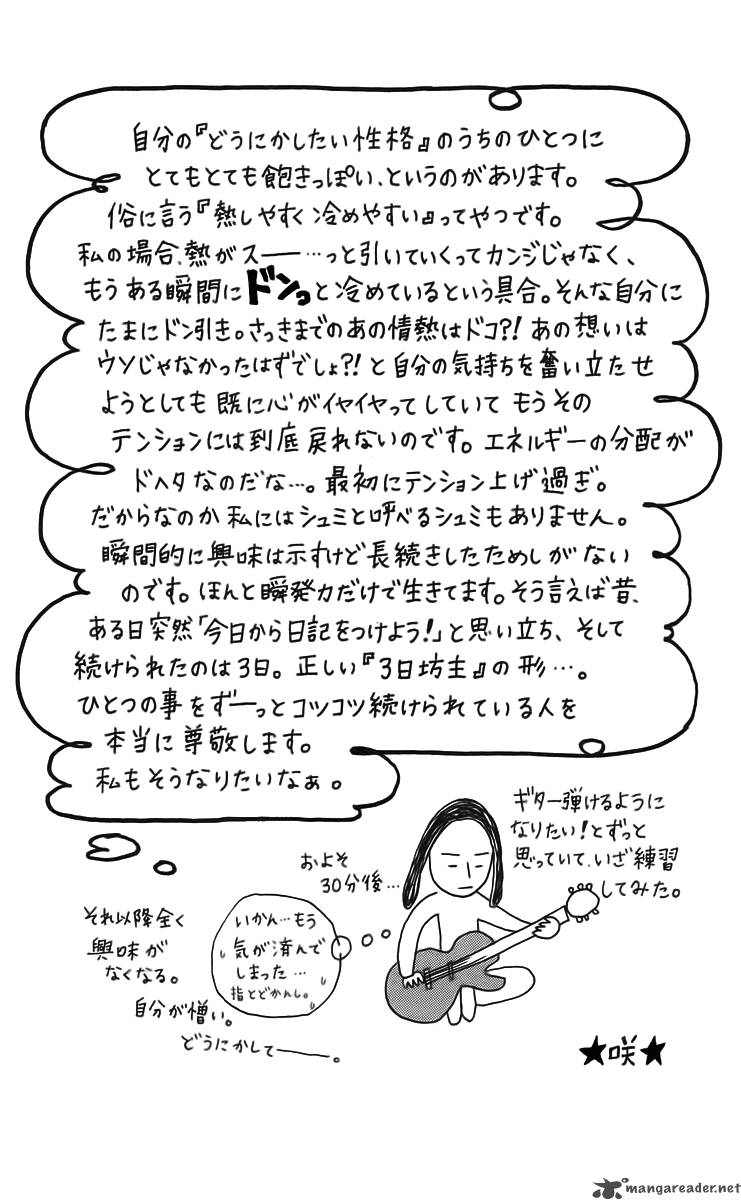 自分の『どうにかしたい性格』のうちのひとつに
とてもとても飽きっぽい、というのがあります。
俗に言う『熱しやすく冷めやすい』ってやつです。
私の場合、熱がスー──…っと引いていくってカンジじゃなく、
もうある瞬間にドンっと冷めているという具合。そんな自分に
たまにドン引き。さっきまでのあの情熱はドコ?!あの想いは
ウソじゃなかったはずでしょ?!と自分の気持ちを奮い立たせ
ようとしても既に心がイヤイヤってしていてもうその
テンションには到底戻れないのです。エネルギーの分配が
ドヘタなのだな…。最初にテンション上げ過ぎ。
だからなのか私にはシュミと呼べるシュミもありません。
瞬間的に興味は示すけど長続きしたためしがない
のです。ほんと瞬発力だけで生きてます。そう言えば昔、
ある日突然「今日から日記をつけよう!」と思い立ち、そして
続けられたのは3日。正しい『3日坊主』の形…。
ひとつの事をずーっとコツコツ続けられている人を
本当に尊敬します。
私もそうなりたいなぁ。
ギター弾けるように
なりたい!とずっと
思っていて、いざ練習
してみた。
およそ
30分後…
いかん…もう
気が済んで
しまった…
指とどかんし。
それ以降全く
興味が
なくなる。
自分が憎い。
どうにかして───。
★咲★
mangareader.net